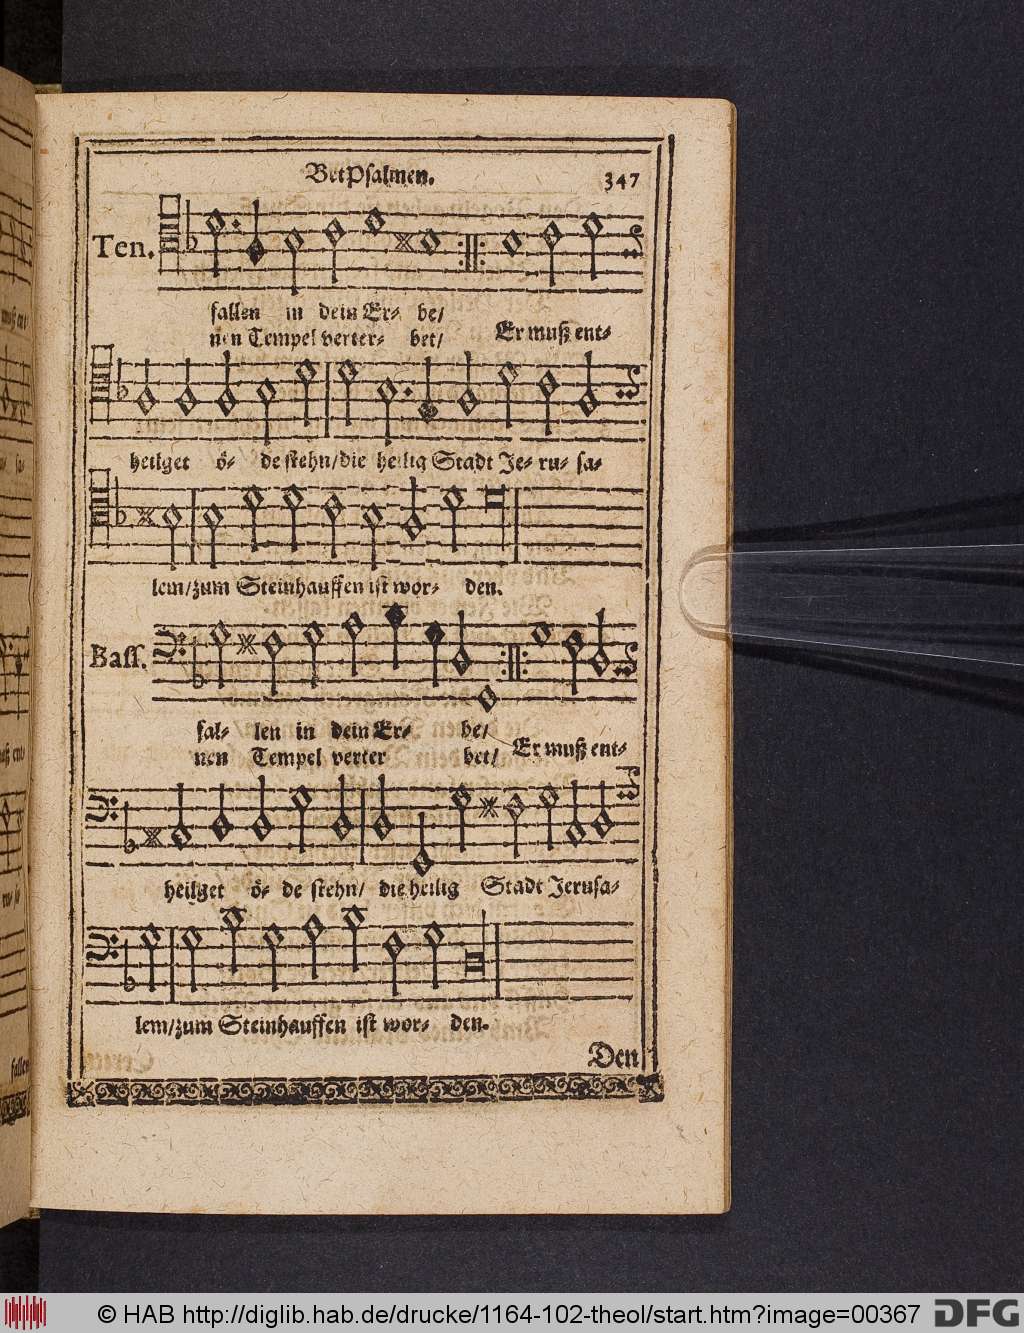 BetPsalmen. 347
Ten.
fallen in dein Er- be/
nen Tempel verter- bet/ Er muß ent-
heilget ö- de stehn/die heilig Stadt Je- ru- sa-
lem/zum Steinhauffen ist wor- den.
Bass.
fal- len in dein Er- be/
nen Tempel verter bet/ Er muß ent-
heilget ö- de stehn/ die heilig Stadt Jerusa-
lem/zum Steinhauffen ist wor- den.
Den
© HAB http://diglib.hab.de/drucke/1164-102-theol/start.htm?image=00367 DFG